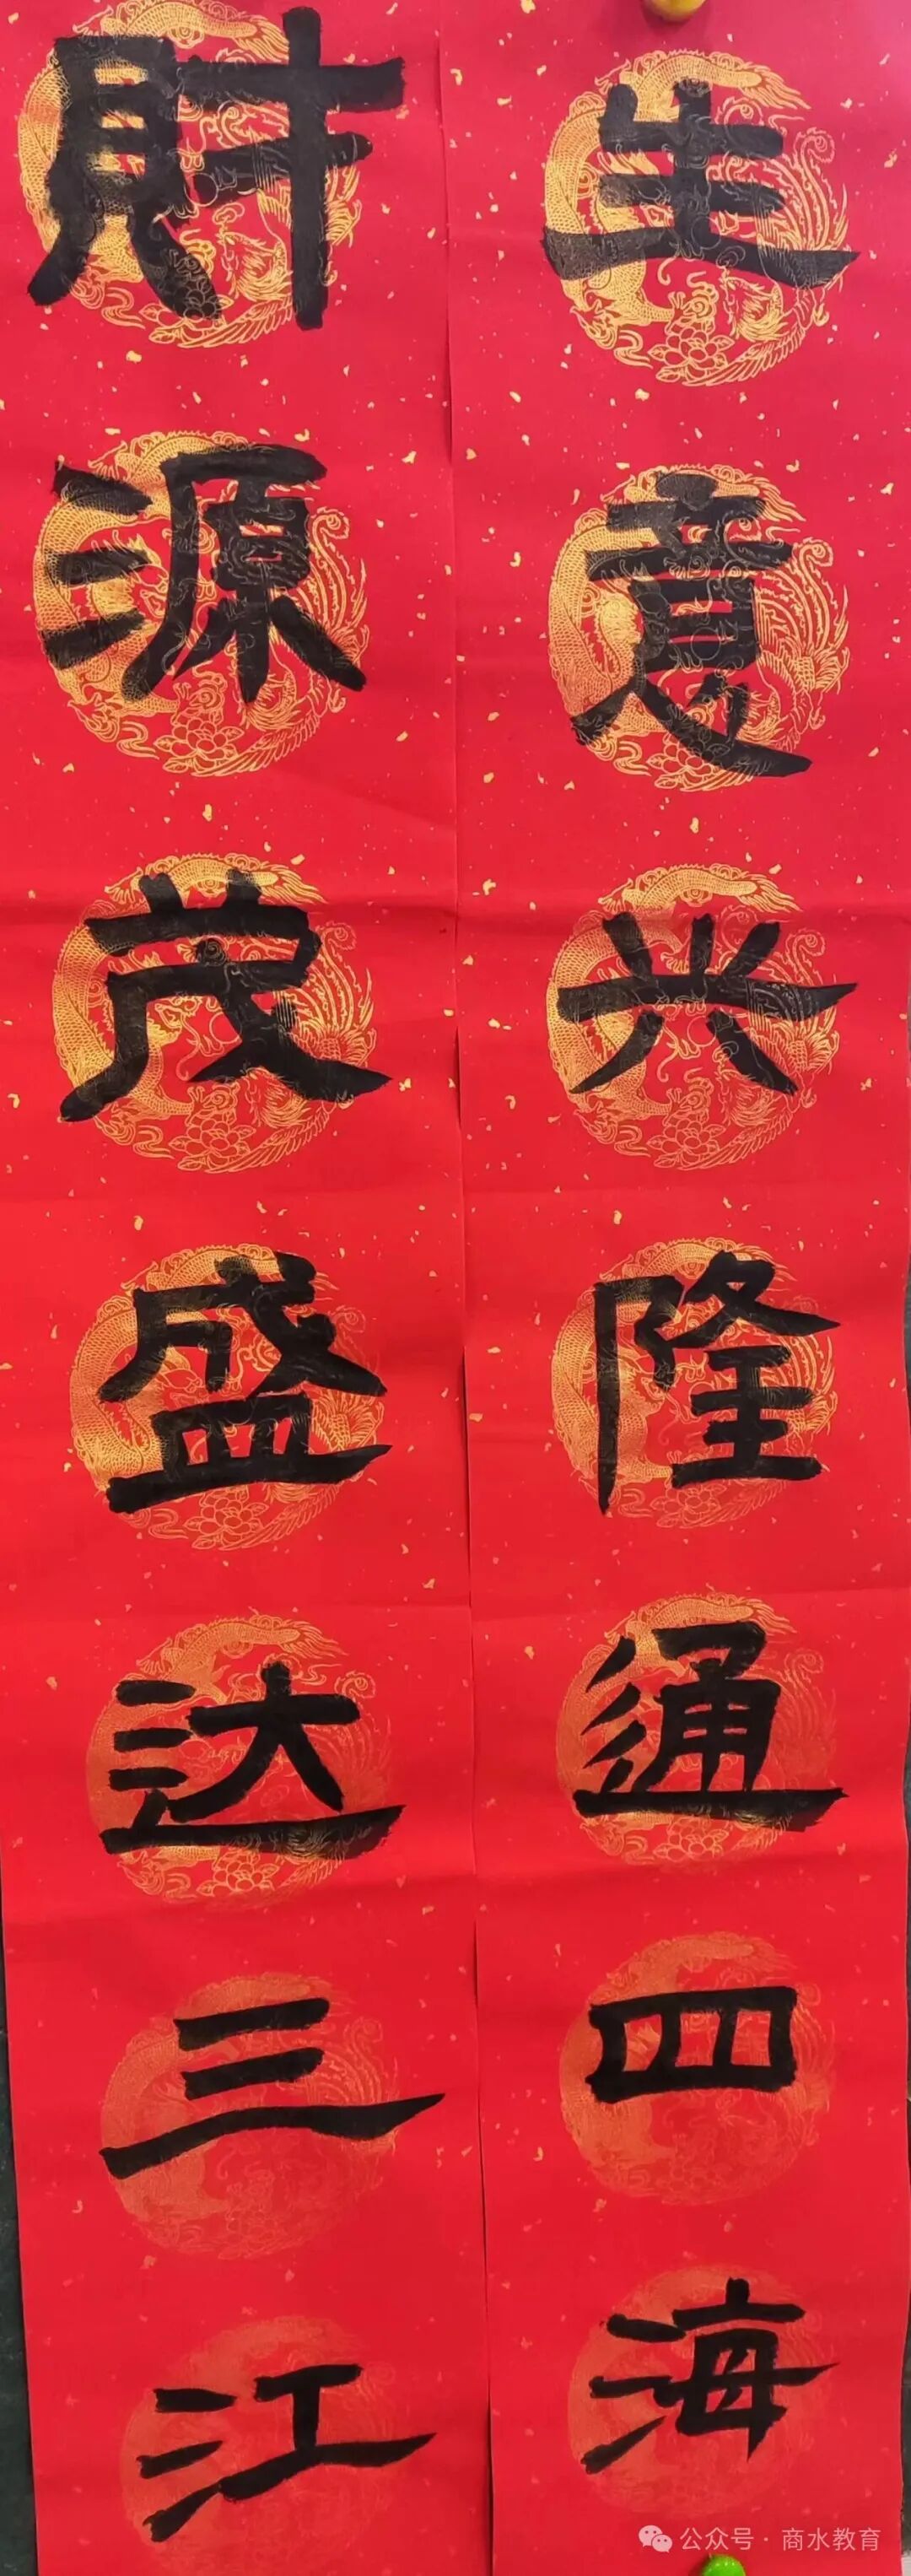 生意兴隆通四海
財源茂盛达三江
公众号·商水教育